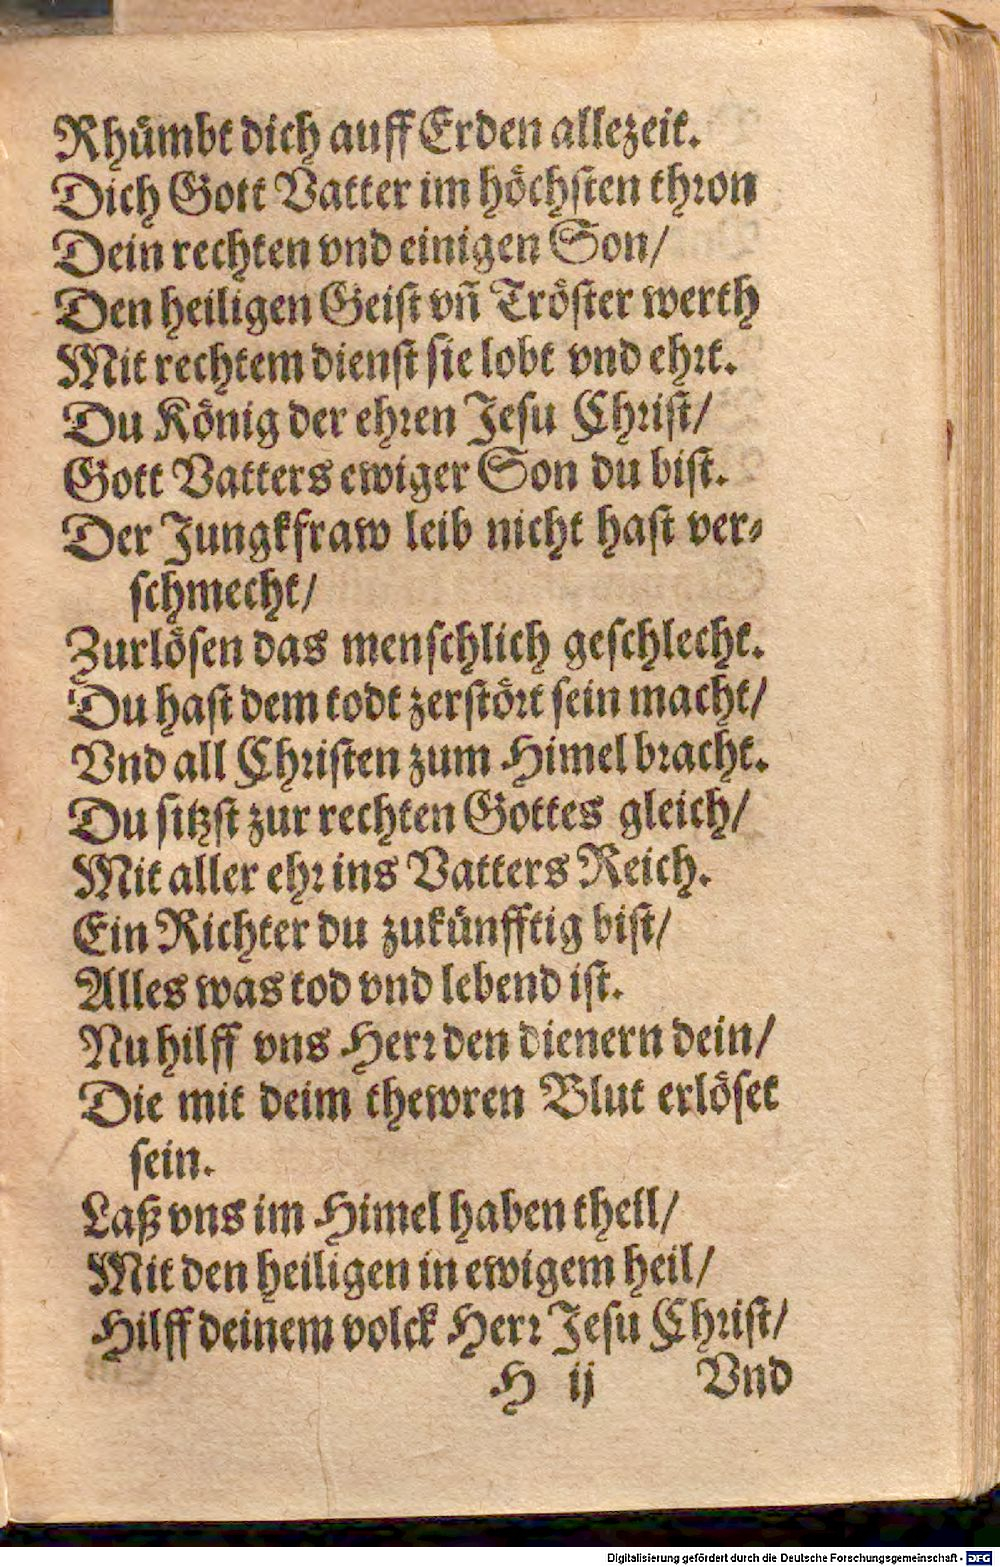 Rhümbt dich auff Erden allezeit.
Dich Gott Vatter im höchsten thron
Dein rechten vnd einigen Son/
Den heiligen Geist vñ Tröster werth
Mit rechtem dienst sie lobt vnd ehrt.
Du König der ehren Jesu Christ/
Gott Vatters ewiger Son du bist.
Der Jungkfraw leib nicht hast ver-
schmecht/
Zurlösen das menschlich geschlecht.
Du hast dem todt zerstört sein macht/
Vnd all Christen zum Himel bracht.
Du sitzst zur rechten Gottes gleich/
Mit aller ehr ins Vatters Reich.
Ein Richter du zukünfftig bist/
Alles was tod vnd lebend ist.
Nu hilff vns Herr den dienern dein/
Die mit deim thewren Blut erlöset
sein.
Laß vns im Himel haben theil/
Mit den heiligen in ewigem heil/
Hilff deinem volck Herr Jesu Christ/
H ij Vnd
Digitalisierung gefördert durch die Deutsche Forschungsgemeinschaft - DFG